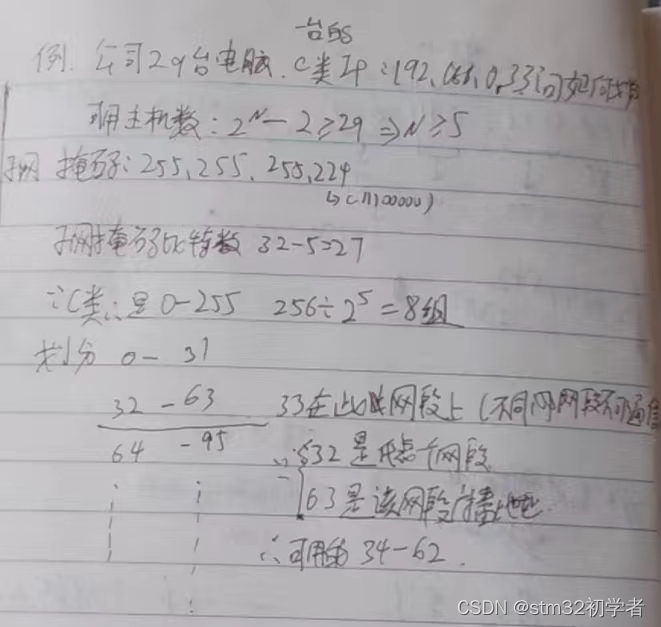 一台的
例. 公司29台电脑. C类IP:192.168.0.33问如何划
可用主机数:2^N-2≥29⇒N≥5
子网 掩码:255.255.255.224
↳(11100000)
子网掩码比特数 32-5=27
∵C类∴是0-255 256÷2^5=8组
划分 0- 31
32-63 33在此网段上(不同网段不可通信
64 -95 ∵32是 网段
63是该网段广播地址
∴可用的 34-62.
CSDN @stm32初学者